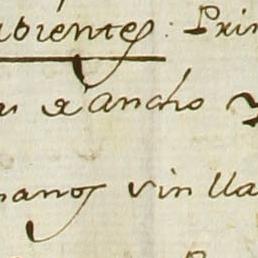 abientes: Prin
de ancho y
manos vin lla